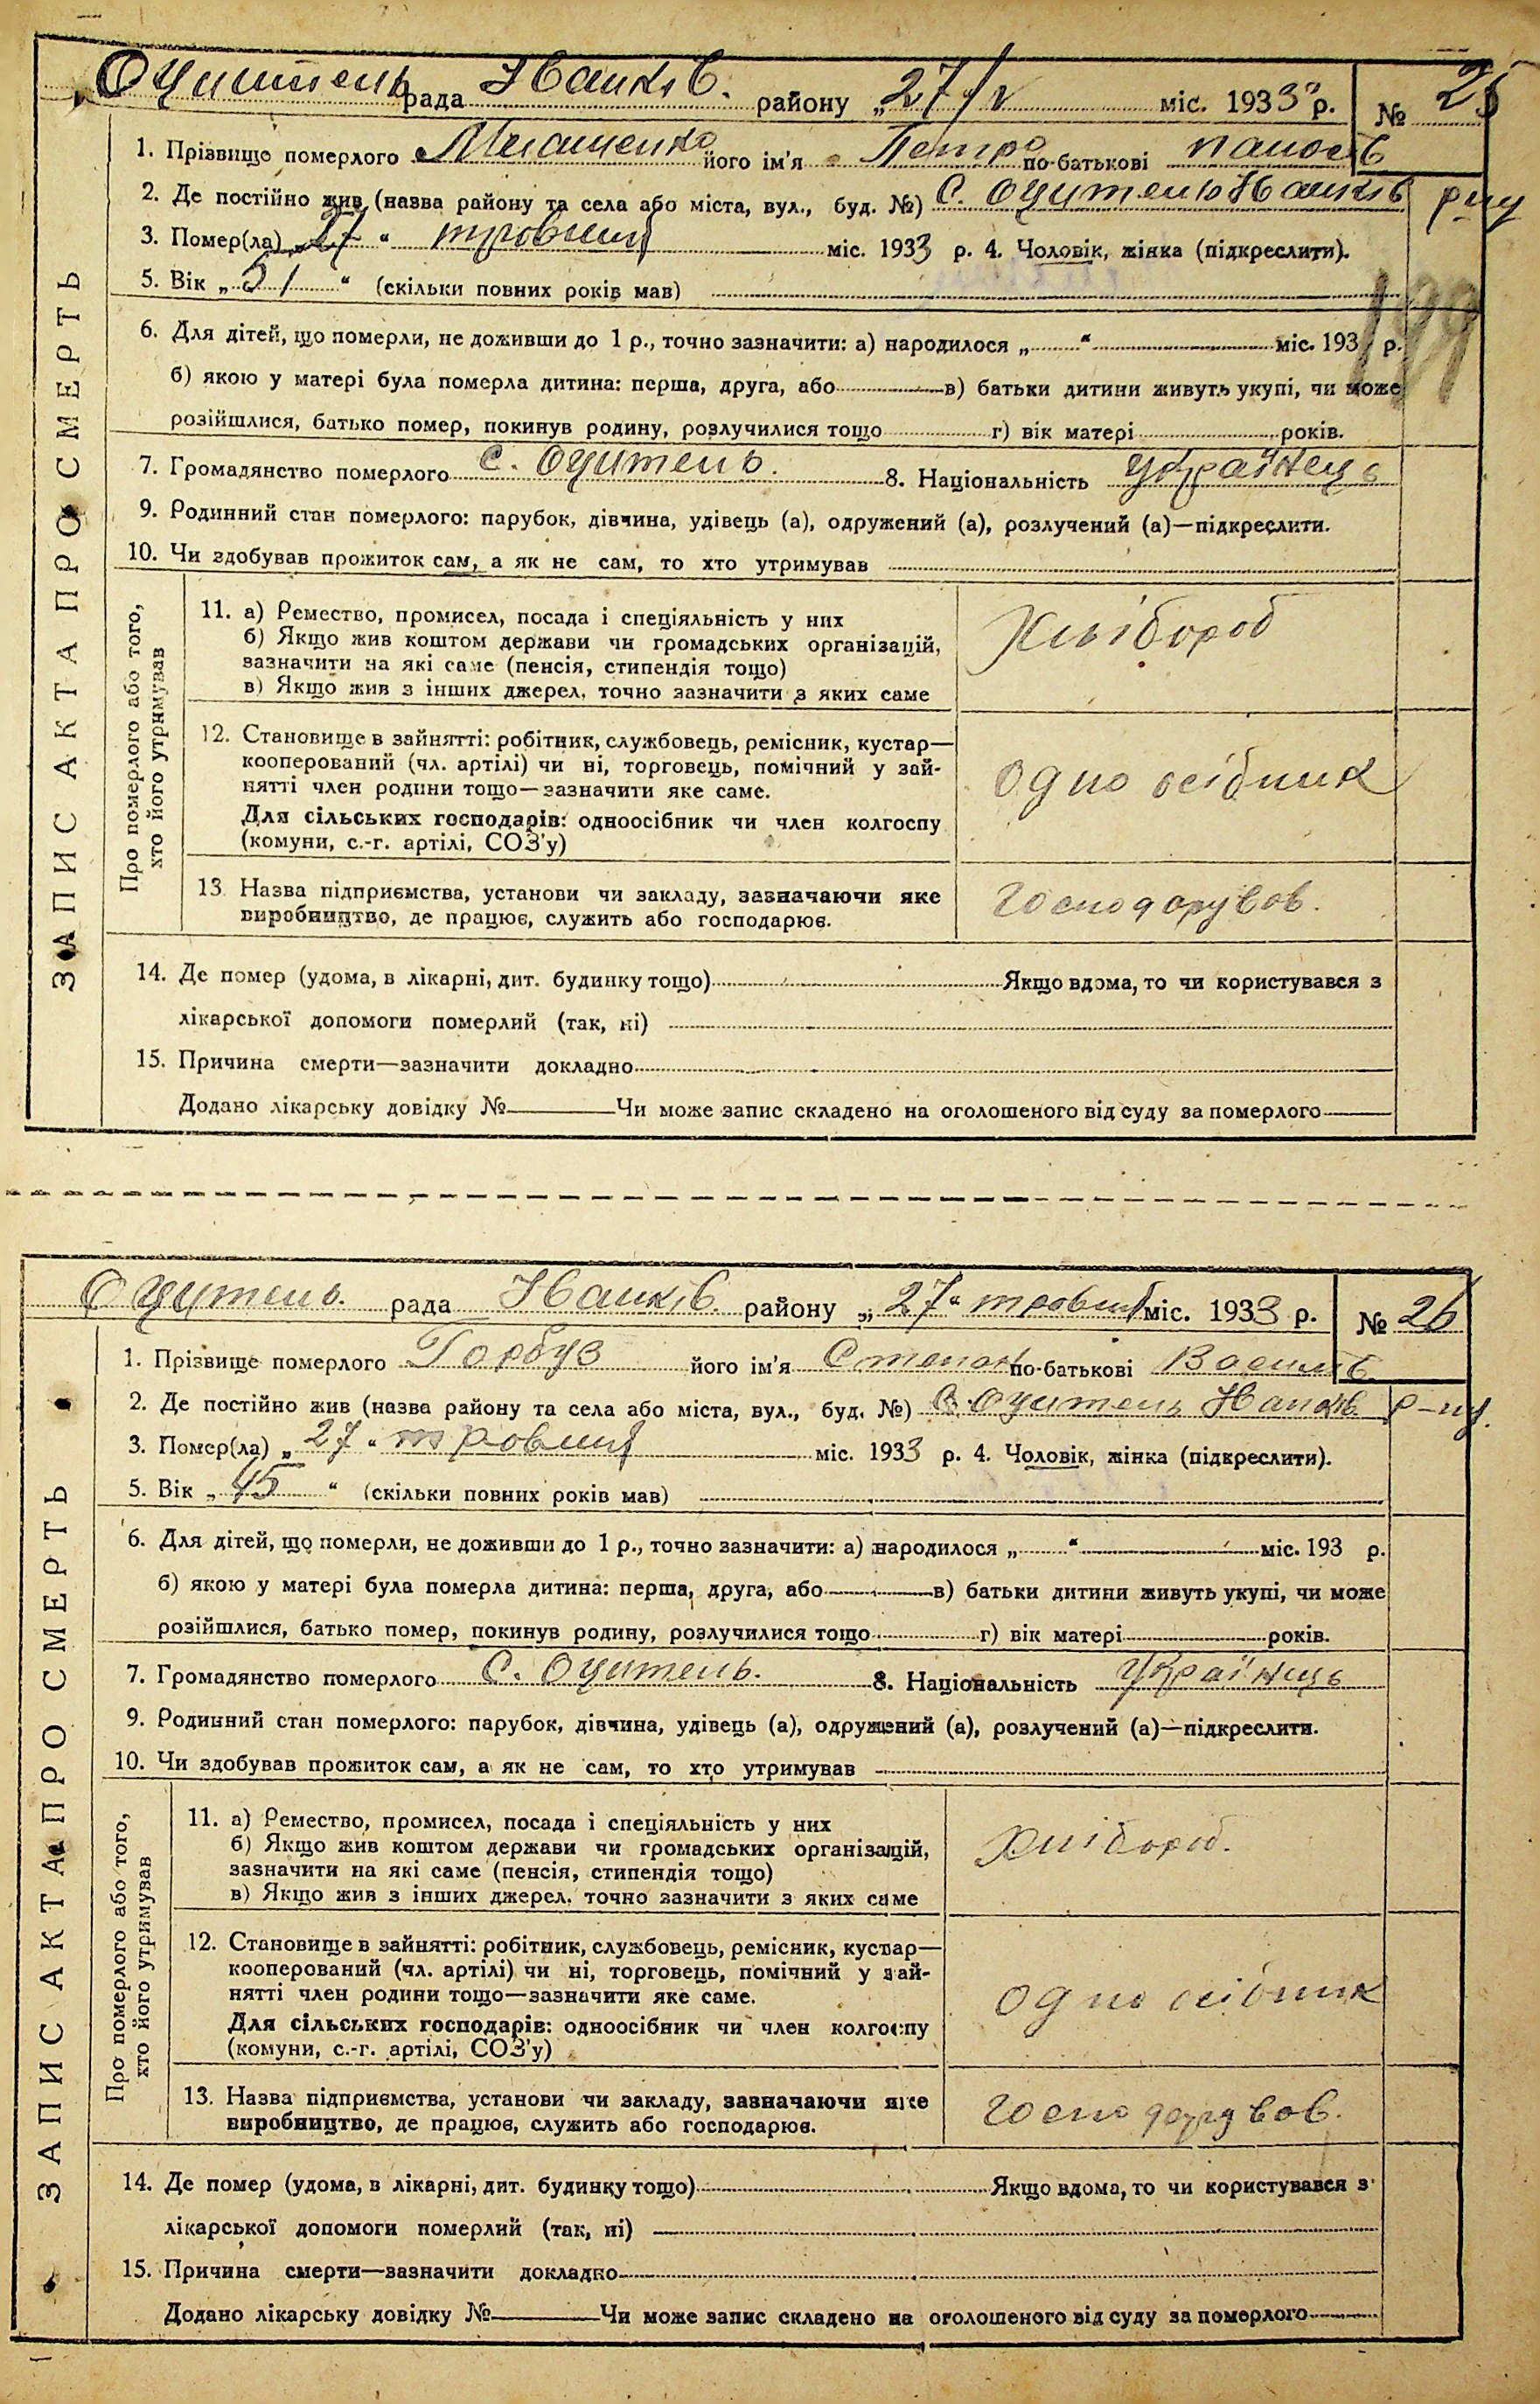 Оцитель рада Іванків. району „27/V міс. 1933 р. № 25
1. Прізвище померлого його ім'я Петро по-батькові
2. Де постійно жив (назва району та села або міста, вул., буд. №) С. Оцитель Іванків р-ну
3. Помер(ла) „27“ тровня міс. 1933 р. 4. Чоловік, жінка (підкреслити).
5. Вік „ “ (скільки повних років мав)
6. Для дітей, що померли, не доживши до 1 р., точно зазначити: а) народилося „ “ міс. 193 р.
б) якою у матері була померла дитина: перша, друга, або в) батьки дитини живуть укупі, чи може
розійшлися, батько помер, покинув родину, розлучилися тощо г) вік матері років.
7. Громадянство померлого С. Оцитель. 8. Національність Українець
9. Родинний стан померлого: парубок, дівчина, удівець (а), одружений (а), розлучений (а)—підкреслити.
10. Чи здобував прожиток сам, а як не сам, то хто утримував
ЗАПИС АКТА ПРО СМЕРТЬ
Про померлого або того,
хто його утримував
11. а) Ремество, промисел, посада і спеціяльність у них
б) Якщо жив коштом держави чи громадських організацій,
зазначити на які саме (пенсія, стипендія тощо)
в) Якщо жив з інших джерел, точно зазначити з яких саме
Хлібороб
12. Становище в зайнятті: робітник, службовець, ремісник, кустар—
кооперований (чл. артілі) чи ні, торговець, помічний у зай-
нятті член родини тощо—зазначити яке саме.
Для сільських господарів: одноосібник чи член колгоспу
(комуни, с.-г. артілі, СОЗ'у)
одно осібник
13. Назва підприємства, установи чи закладу, зазначаючи яке
виробництво, де працює, служить або господарює.
Господорував.
14. Де помер (удома, в лікарні, дит. будинку тощо) Якщо вдома, то чи користувався з
лікарської допомоги померлий (так, ні)
15. Причина смерти—зазначити докладно
Додано лікарську довідку № Чи може запис складено на оголошеного від суду за померлого
Оцитель. рада Іванків. району „27“ тровня міс. 1933 р. № 26
1. Прізвище померлого Горбуз його ім'я Степан по-батькові Васильів
2. Де постійно жив (назва району та села або міста, вул., буд. №) С. Оцитель Іванків р-ну.
3. Помер(ла) „27“ тровня міс. 1933 р. 4. Чоловік, жінка (підкреслити).
5. Вік „45“ (скільки повних років мав)
6. Для дітей, що померли, не доживши до 1 р., точно зазначити: а) народилося „ “ міс. 193 р.
б) якою у матері була померла дитина: перша, друга, або в) батьки дитини живуть укупі, чи може
розійшлися, батько помер, покинув родину, розлучилися тощо г) вік матері років.
7. Громадянство померлого С. Оцитель. 8. Національність Українець
9. Родинний стан померлого: парубок, дівчина, удівець (а), одружений (а), розлучений (а)—підкреслити.
10. Чи здобував прожиток сам, а як не сам, то хто утримував
ЗАПИС АКТА ПРО СМЕРТЬ
Про померлого або того,
хто його утримував
11. а) Ремество, промисел, посада і спеціяльність у них
б) Якщо жив коштом держави чи громадських організацій,
зазначити на які саме (пенсія, стипендія тощо)
в) Якщо жив з інших джерел, точно зазначити з яких саме
Хлібороб.
12. Становище в зайнятті: робітник, службовець, ремісник, кустар—
кооперований (чл. артілі) чи ні, торговець, помічний у зай-
нятті член родини тощо—зазначити яке саме.
Для сільських господарів: одноосібник чи член колгоспу
(комуни, с.-г. артілі, СОЗ'у)
одно осібник
13. Назва підприємства, установи чи закладу, зазначаючи яке
виробництво, де працює, служить або господарює.
Господорував.
14. Де помер (удома, в лікарні, дит. будинку тощо) Якщо вдома, то чи користувався з
лікарської допомоги померлий (так, ні)
15. Причина смерти—зазначити докладно
Додано лікарську довідку № Чи може запис складено на оголошеного від суду за померлого